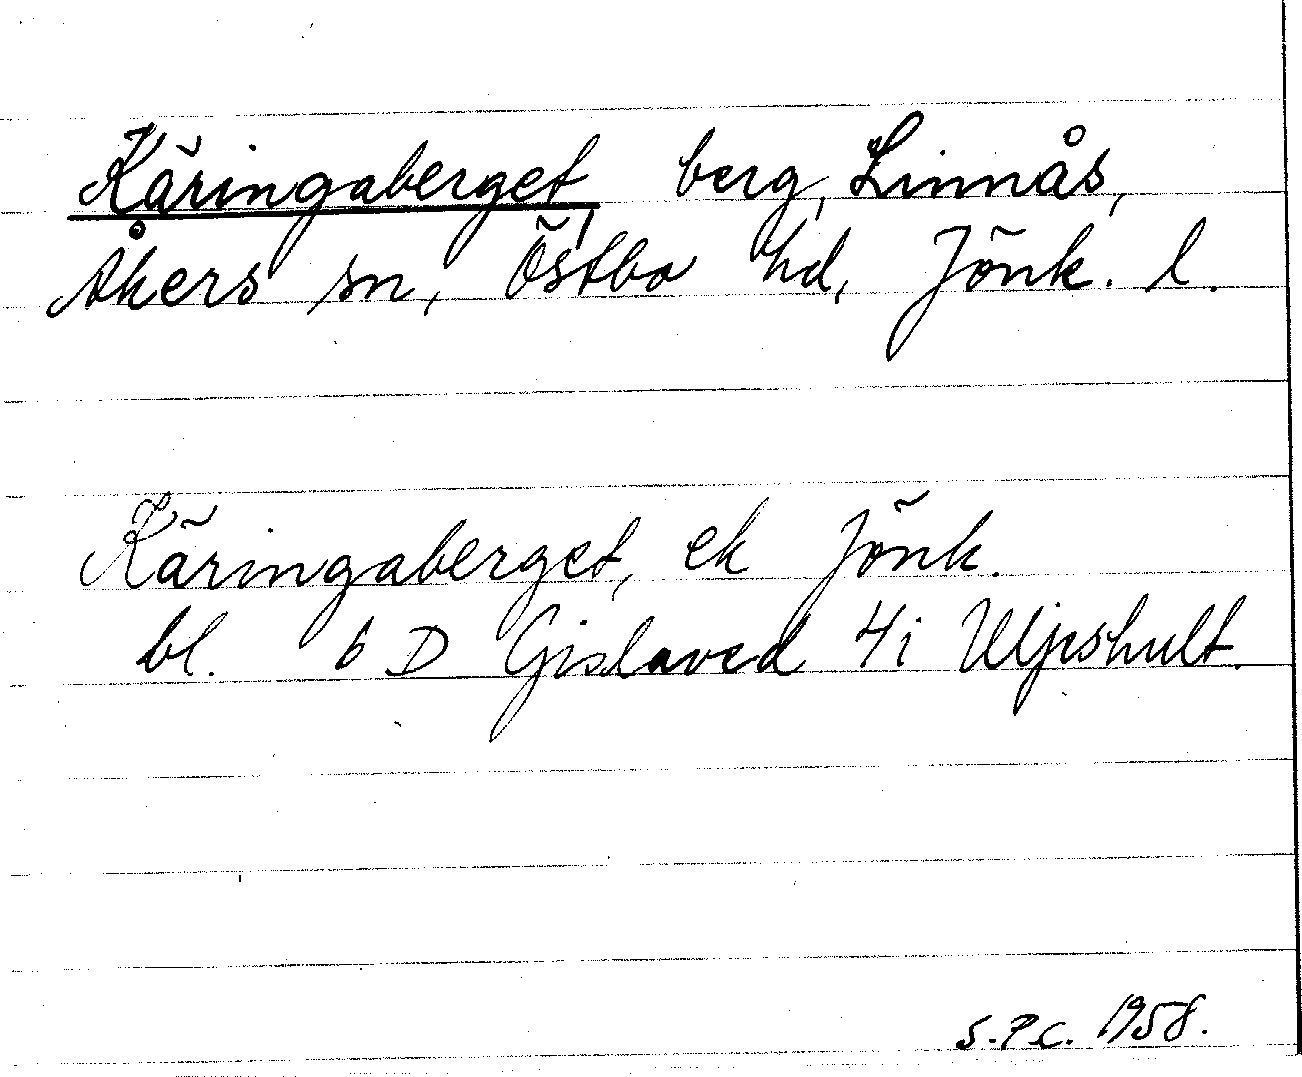 Käringaberget, berg, Linnås,
Åkers sn, Östbo hd, Jönk. l.
Käringaberget, ek Jönk.
bl. 6 D Gislaved 4i Uljeshult.
S.P.C. 1958.